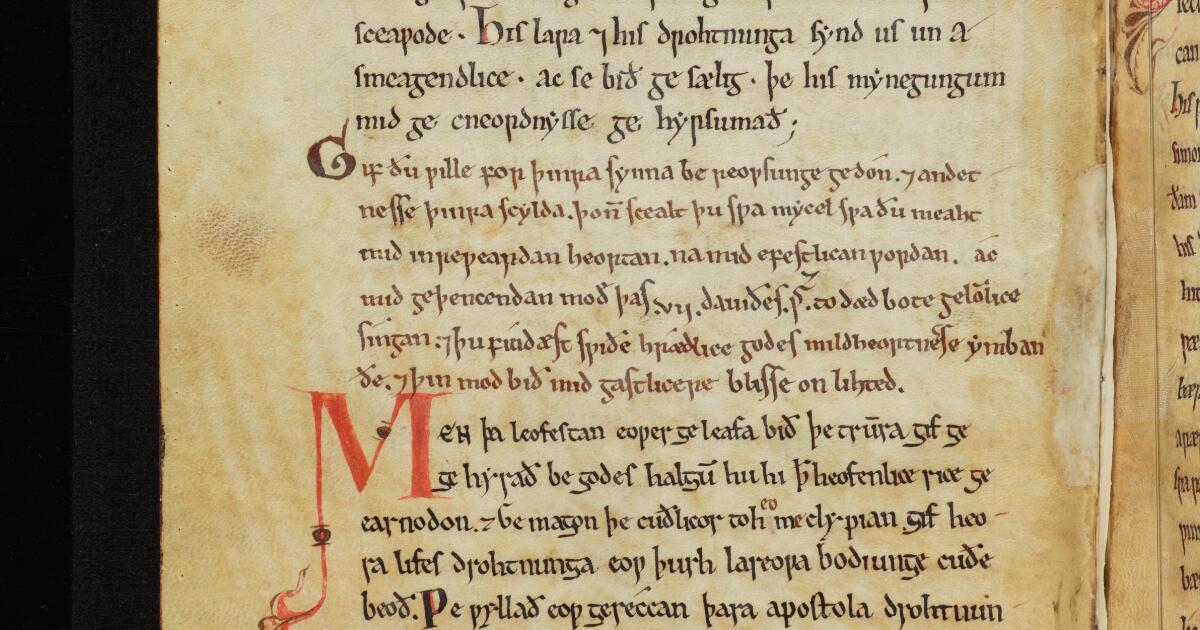 sceaƿode. His lara ⁊ his drohtnunga synd us un a
smeagendlice. ac se bið ge sælig. þe his mynegungum
mid ge cneordnysse ge hyrsumað;
Gif ðu ƿille for þinra synna be reoƿsunge gedón. ⁊ andet
nesse þinra scylda. þon̄ scealt þu sƿa mycel sƿa ðu meaht
mid inneƿeardan heortan. na mid efestlican ƿordan. ác
mid geþencendan mod þas .vij. dauides. ps̄. to dædbote gelōlice
singan: ⁊ þu findæst sƿiðe hrædlice godes mildheortnesse ymban
ðe. ⁊ þin mod bið mid gastlicere blisse on lihted.
MEN þa leofestan eoƿer geleafa bið þe trūra gif ge
ge hyrað be godes halgū hu hi ꝥ heofenlice rice ge
earnodon. ⁊ ge magon þe cuðlicor to heom clypian gif heo
ra lifes drohtnunga eoƿ þurh lareoƿa bodunge cuðe
beoð. Ƿe ƿyllað eoƿ gereccan þara apostola drohtnun